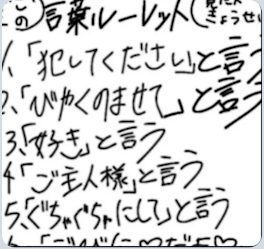 この 言葉ルーレット(
1、「犯してください」と言う
2、「びやくのませて」と言う
3、「好き」と言う
4「ご主人様」と言う
5、「ぐちゃぐちゃにして」と言う